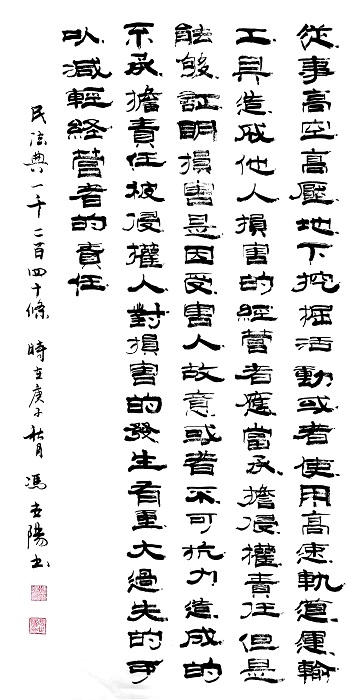 從事高空高壓地下挖掘活動或者使用高速軌道運輸
工具造成他人損害的經營者應當承擔侵權責任但是
能够証明損害是因受害人故意或者不可抗力造成的
不承擔責任被侵權人對損害的發生有重大過失的可
以減輕経營者的責任
民法典一千二百四十條 時在庚子秋月 馮陽书